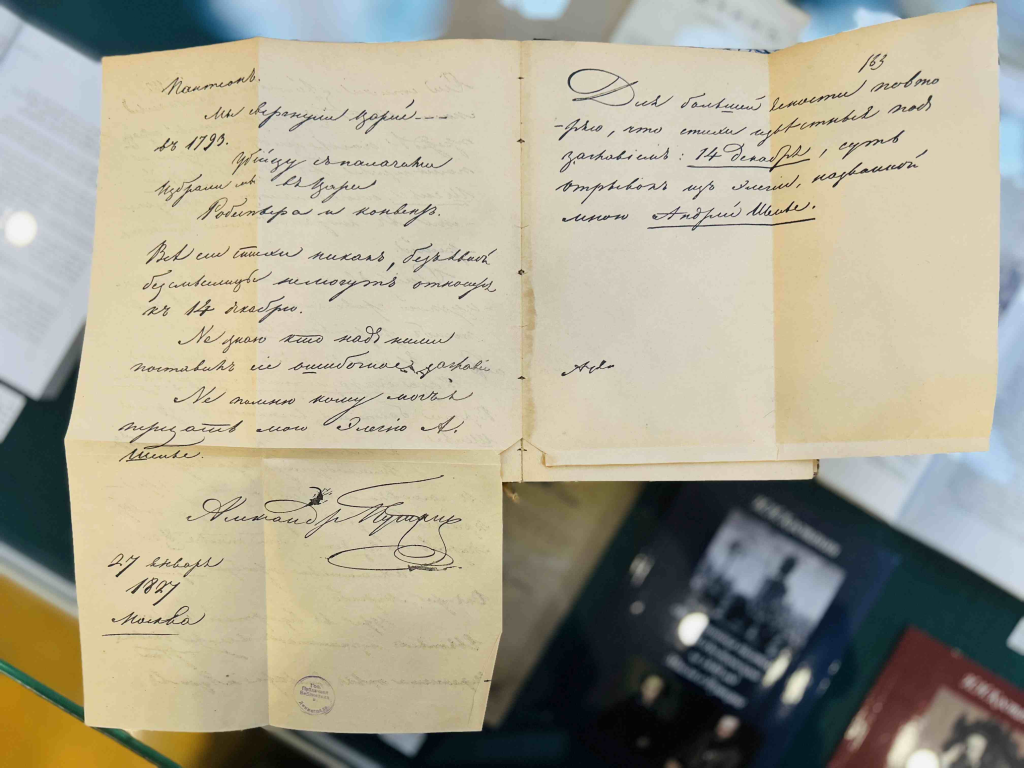 Пантеонъ.
Мы свергнули царей----
въ 1793.
Убійцу съ палачами
Избрали мы въ Цари
Робеспьера и конвентъ.
Всѣ сіи стихи никакъ, безъ явной
безсмыслицы немогутъ относиться
къ 14 декабрю.
Не знаю кто надъ ними
поставилъ сіе ошибочное заглавіе
Не помню кому могъ я
передать мою Элегію А.
Шенье.
Александръ Пушкинъ
27 январь
1827
Москва
163
Для большей ясности повто
-ряю, что стихи извѣстные подъ
заглавіемъ: 14 декабря, суть
отрывокъ изъ Элегіи, названной
мною Андрей Шенье.